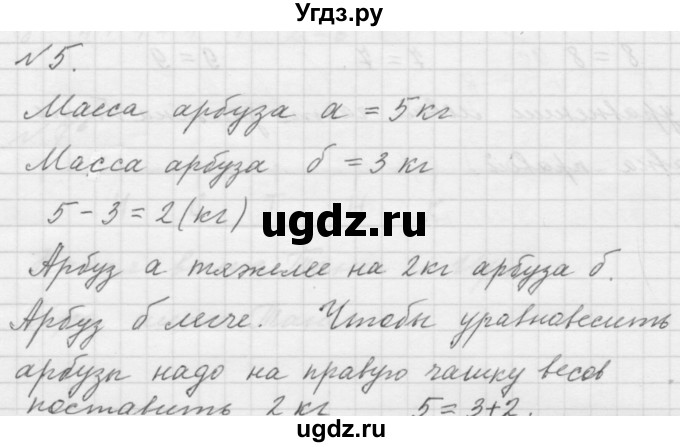 Угдз.ру
№5.
Масса арбуза а = 5 кг
Масса арбуза б = 3 кг
5 - 3 = 2 (кг)
ugdz.ru
Арбуз а тяжелее на 2 кг арбуза б.
Арбуз б легче. Чтобы уравновесить
арбузы надо на правую чашку весов
поставить 2 кг 5 = 3+2.
ugdz.ru